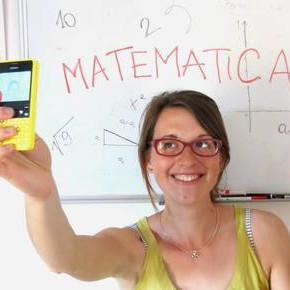 10 2
MATEMATICA
x²
a
√9